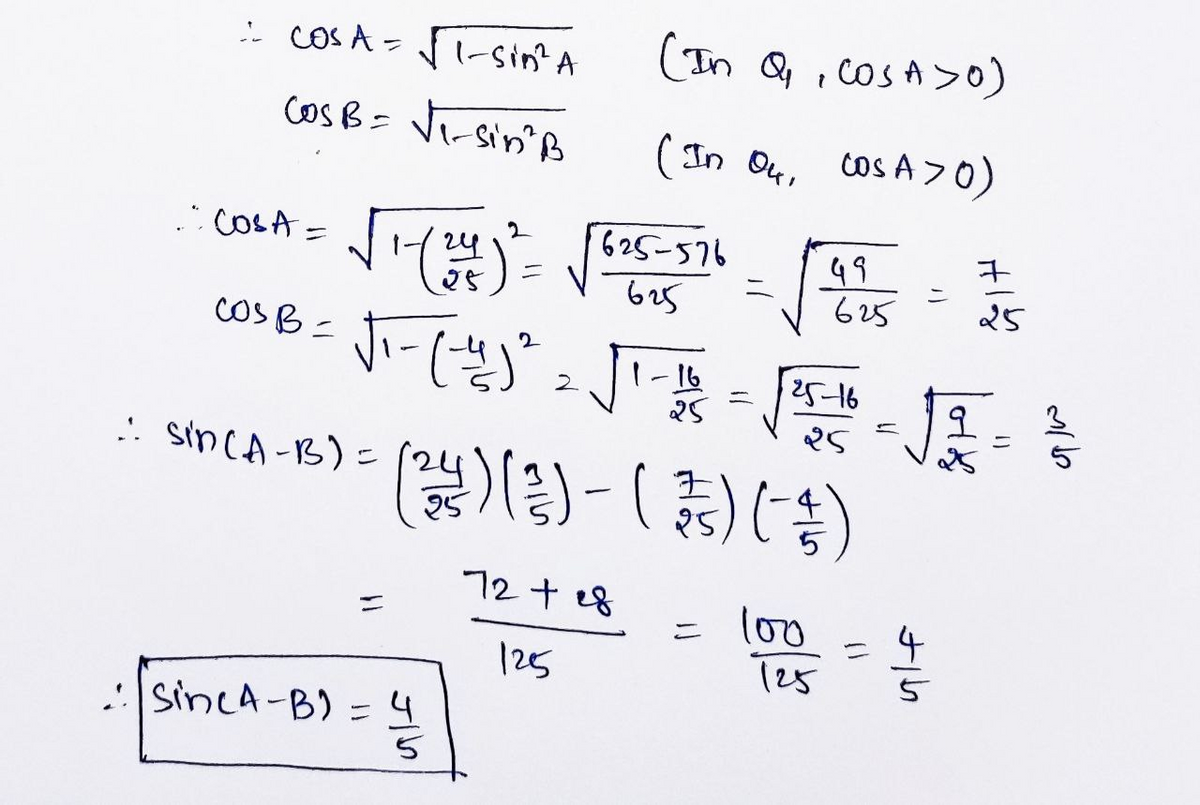 ∴ cos A = √(1-sin²A) (In Q₁, cos A > 0)
cos B = √(1-sin²B) (In Q₄, cos A > 0)
∴ cos A = √(1-(24/25)²) = √((625-576)/625) = √(49/625) = 7/25
cos B = √(1-(-4/5)²) = √(1-16/25) = √((25-16)/25) = √(9/25) = 3/5
∴ sin(A-B) = (24/25)(3/5) - (7/25)(-4/5)
= (72+28)/125 = 100/125 = 4/5
∴ sin(A-B) = 4/5